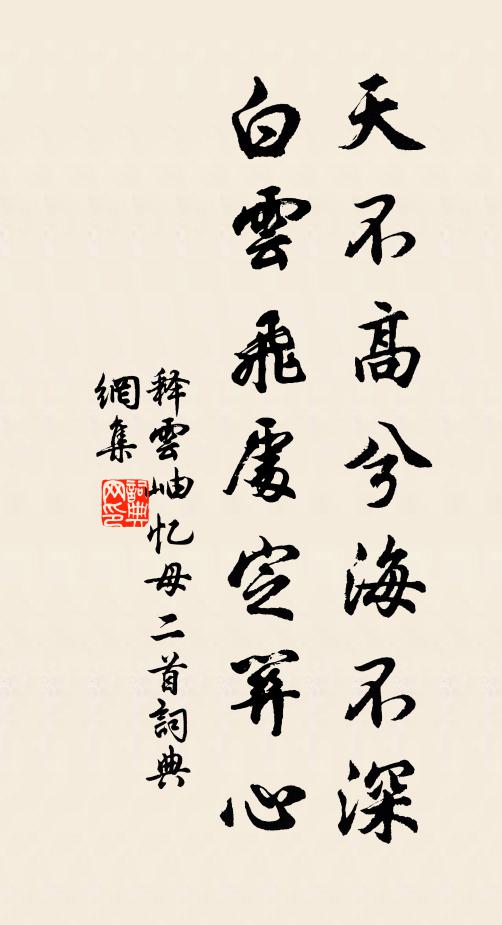 天不高兮海不深
白雲飛處定關心
释雲岫忆母二首詞典
網集
詞典網印